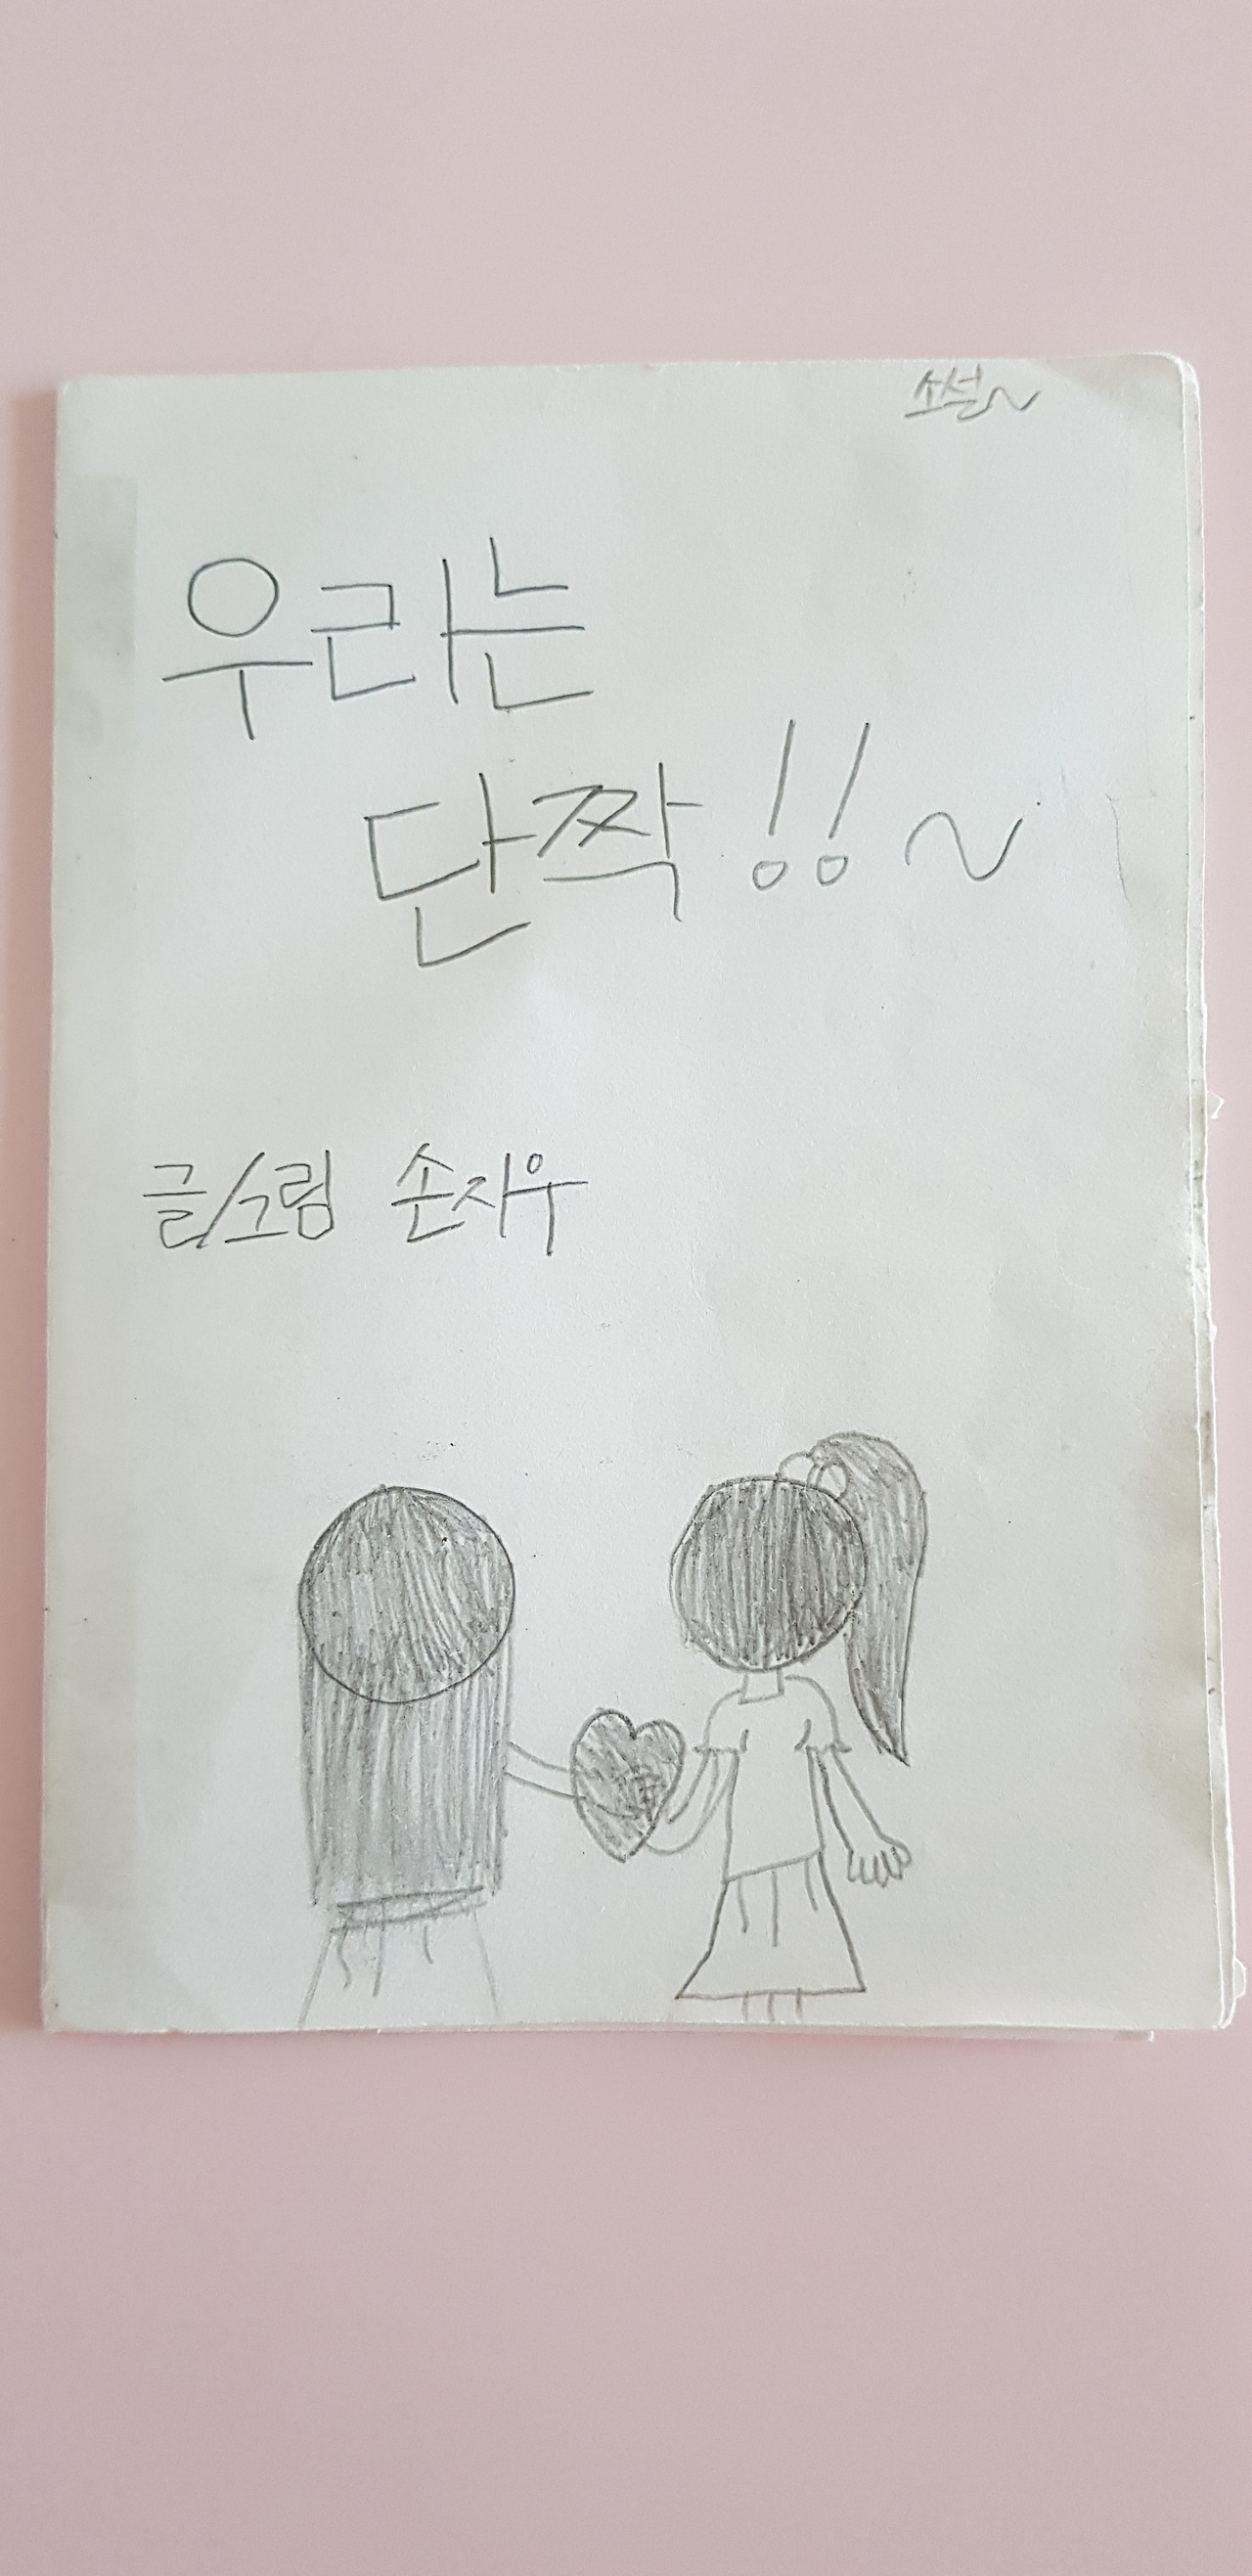 소설~
우리는
단짝!!~
글/그림 손지우